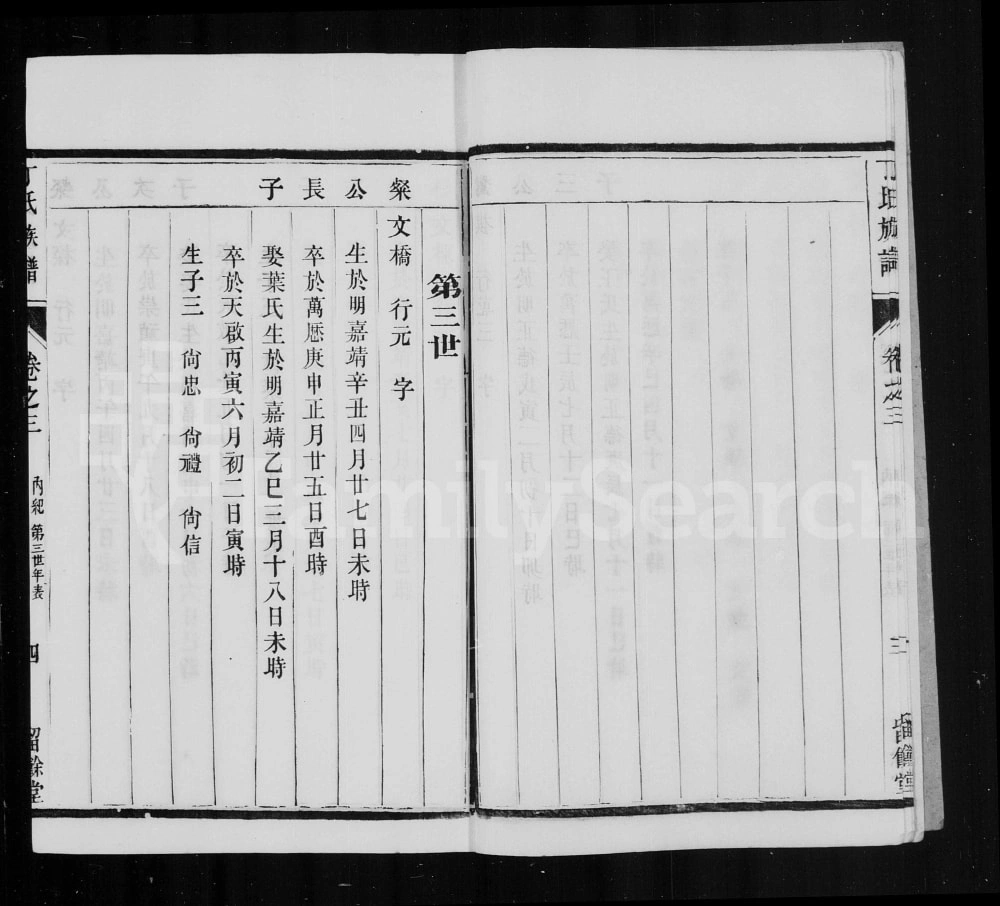 丁氏族譜
卷之三
三
留餘堂
第三世
粲文橋 行元 字
公 生於明嘉靖辛丑四月廿七日未時
長 卒於萬厯庚申正月廿五日酉時
子 娶葉氏生於明嘉靖乙巳三月十八日未時
卒於天啟丙寅六月初二日寅時
生子三 尙忠 尙禮 尙信
丁氏族譜
卷之三
內紀 第三世年表
四
留餘堂
FamilySearch